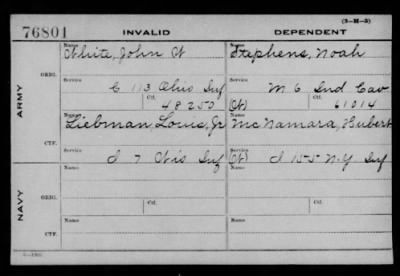 (3-M-3)
76801 INVALID DEPENDENT
Name White, John W Name Stephens, Noah
ARMY ORIG. Service C 113 Ohio Inf Service M 6 Ind Cav
Ctf. 48250 (Ct) Ctf. 61014
CTF. Name Liebman, Louis, Jr Name McNamara, Hubert
Service I 7 Wis Inf (Ct) Service I 155 N.Y Inf
NAVY ORIG. Name Name
Ctf. Ctf.
CTF. Name Name